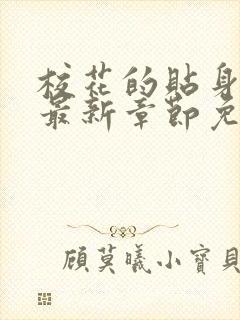 校花的貼身
最新章節免
顧莫曦小寶貝